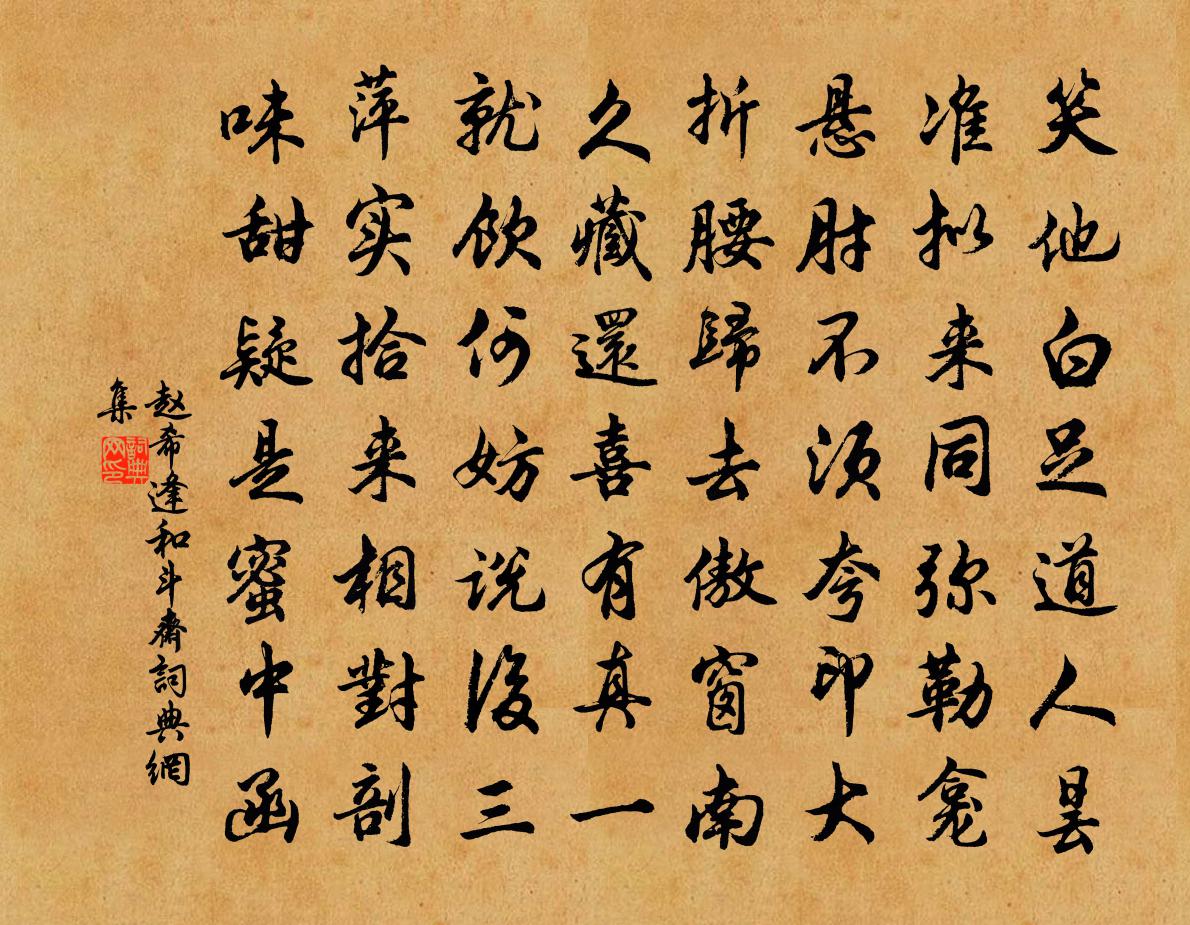 笑他白足道人昙
准拟来同弥勒龛
悬肘不须夸印大
折腰歸去傲窗南
久藏還喜有真一
就饮何妨说後三
萍实拾来相對剖
味甜疑是蜜中函
赵希逢和斗齋詞典網
集
詞典網印